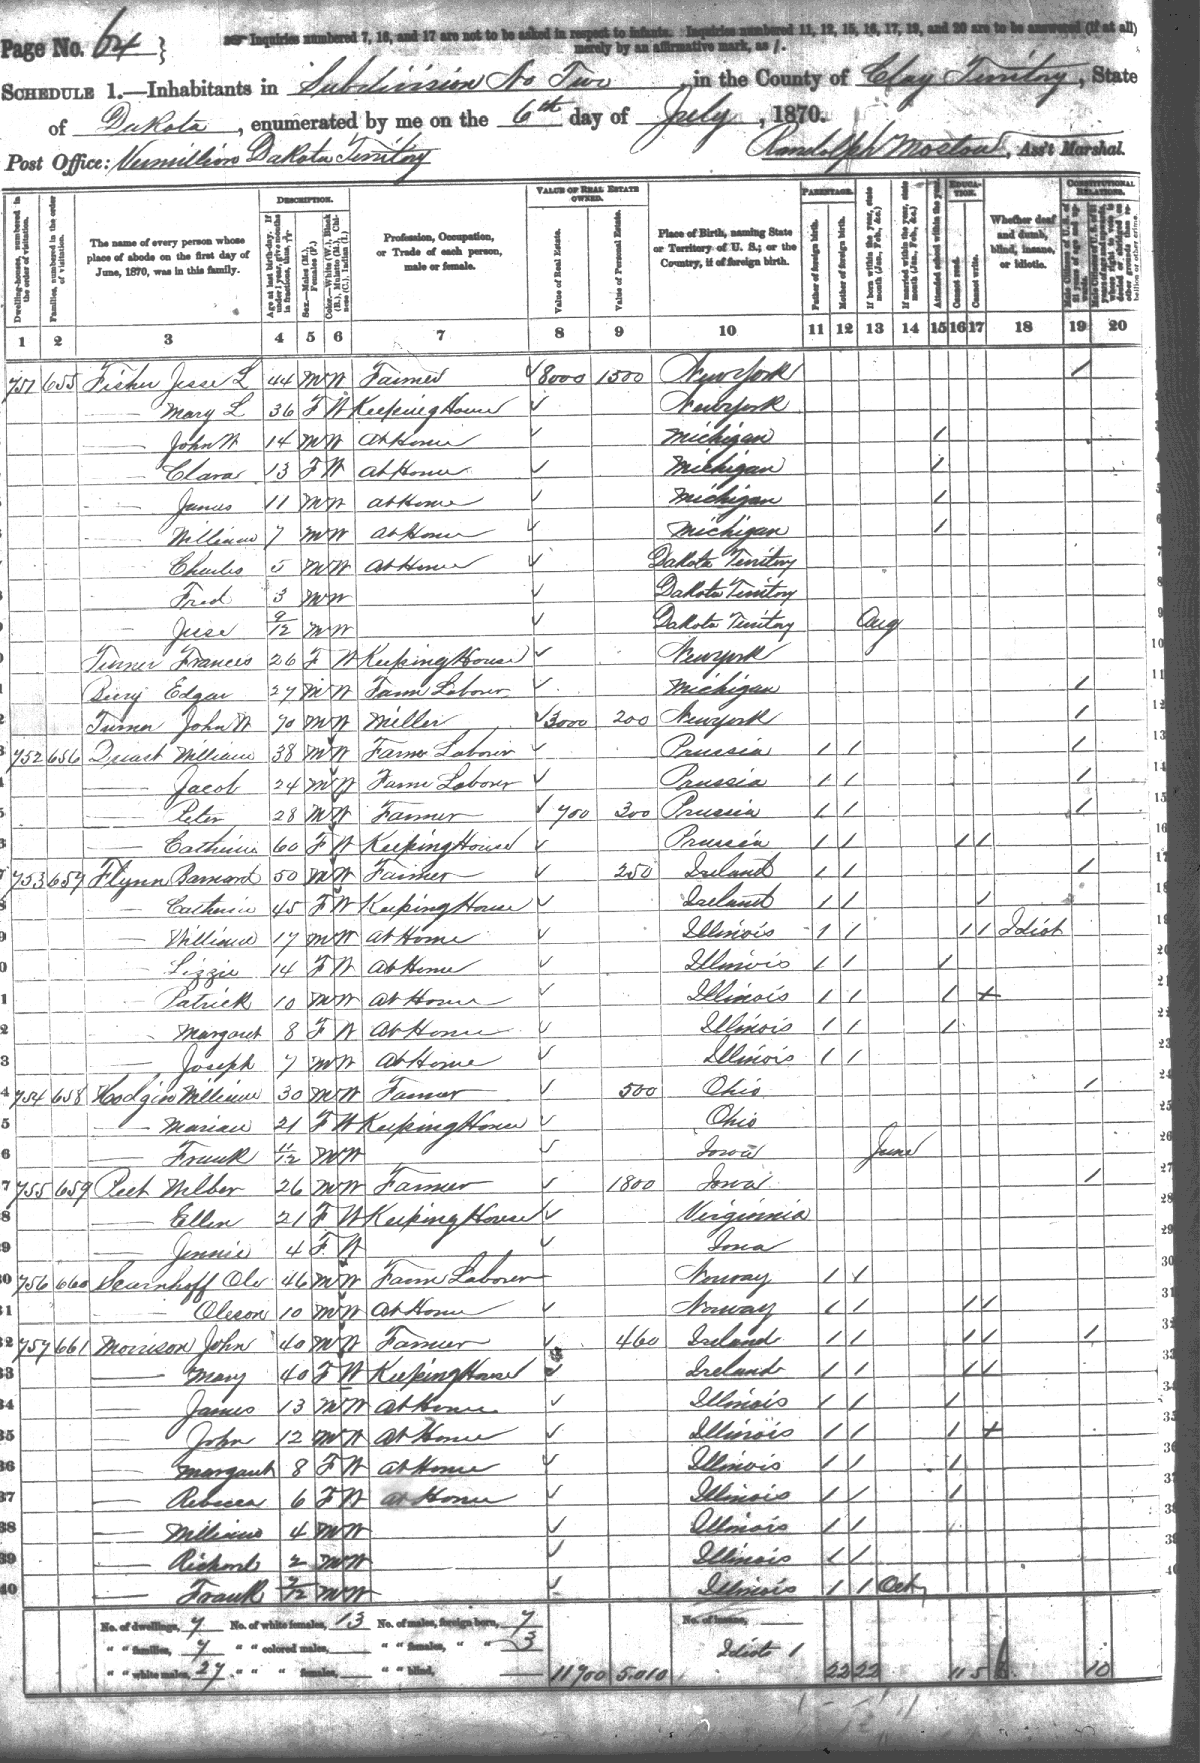 Page No. 64 }
Inquiries numbered 7, 16, and 17 are not to be asked in respect to infants. Inquiries numbered 11, 12, 15, 16, 17, 19, and 20 are to be answered (if at all)
merely by an affirmative mark, as /.
SCHEDULE 1.—Inhabitants in Subdivision No Two, in the County of Clay Territory, State
of Dakota, enumerated by me on the 6th day of July, 1870.
Post Office: Vermillion Dakota Territory Randolph, Ass't Marshal.
Dwelling-houses, numbered in the order of visitation.
Families, numbered in the order of visitation.
The name of every person whose place of abode on the first day of June, 1870, was in this family.
DESCRIPTION.
Age at last birth-day. If under 1 year, give months in fractions, thus, 3/12
Sex.—Males (M.), Females (F.)
Color.—White (W.), Black (B.), Mulatto (M.), Chinese (C.), Indian (I.)
Profession, Occupation, or Trade of each person, male or female.
VALUE OF REAL ESTATE OWNED.
Value of Real Estate.
Value of Personal Estate.
Place of Birth, naming State or Territory of U. S.; or the Country, if of foreign birth.
PARENTAGE.
Father of foreign birth.
Mother of foreign birth.
If born within the year, state month (Jan., Feb., &c.)
If married within the year, state month (Jan., Feb., &c.)
EDUCATION.
Attended school within the year.
Cannot read.
Cannot write.
Whether deaf and dumb, blind, insane, or idiotic.
CONSTITUTIONAL RELATIONS.
1 2 3 4 5 6 7 8 9 10 11 12 13 14 15 16 17 18 19 20
751 655 Fisher Jesse L 44 M W Farmer 8000 1500 New York /
— Mary L 36 F W Keeping House New York
— John W 14 M W At Home Michigan /
— Clara 13 F W At Home Michigan /
— James 11 M W At Home Michigan /
— William 7 M W At Home Michigan /
— Charles 5 M W At Home Dakota Territory
— Fred 3 M W Dakota Territory
— Jesse 9/12 M W Dakota Territory Aug
Turner Frances 26 F W Keeping House New York
Berry Edgar 27 M W Farm Laborer Michigan /
Turner John W 70 M W Miller 3000 200 New York /
752 656 William 38 M W Farm Laborer Prussia / / /
— Jacob 24 M W Farm Laborer Prussia / / /
— Peter 28 M W Farmer 700 300 Prussia / / /
— Catherine 60 F W Keeping House Prussia / / / /
753 657 Flynn Barnard 50 M W Farmer 250 Ireland / / /
— Catherine 45 F W Keeping House Ireland / / /
— William 17 M W At Home Illinois / / / / Idiot
— Lizzie 14 F W At Home Illinois / / /
— Patrick 10 M W At Home Illinois / / / +
— Margaret 8 F W At Home Illinois / / /
— Joseph 7 M W At Home Illinois / /
754 658 Hodgin William 30 M W Farmer 500 Ohio /
— Mariam 21 F W Keeping House Ohio
— Frank 11/12 M W Iowa June
755 659 Peet Wilber 26 M W Farmer 1800 Iowa /
— Ellen 21 F W Keeping House Virginnia
— Jennie 4 F W Iowa
756 660 Ole 46 M W Farm Laborer Norway / /
— Oleson 10 M W At Home Norway / / / /
757 661 Morrison John 40 M W Farmer 460 Ireland / / / / /
— Mary 40 F W Keeping House Ireland / / / /
— James 13 M W At Home Illinois / / /
— John 12 M W At Home Illinois / / / +
— Margaret 8 F W At Home Illinois / / /
— Rebecca 6 F W At Home Illinois / / /
— William 4 M W Illinois / /
— Richard 2 M W Illinois / /
— Frank M W Illinois / / Oct
No. of dwellings, 7 No. of white females, 13 No. of males, foreign born, 7 No. of insane, —
" " families, 7 " " colored males, — " " females, " " 3 Idiots 1
" " white males, 27 " " " females, — " " blind, — 11700 5.010 22 22 11 5 10